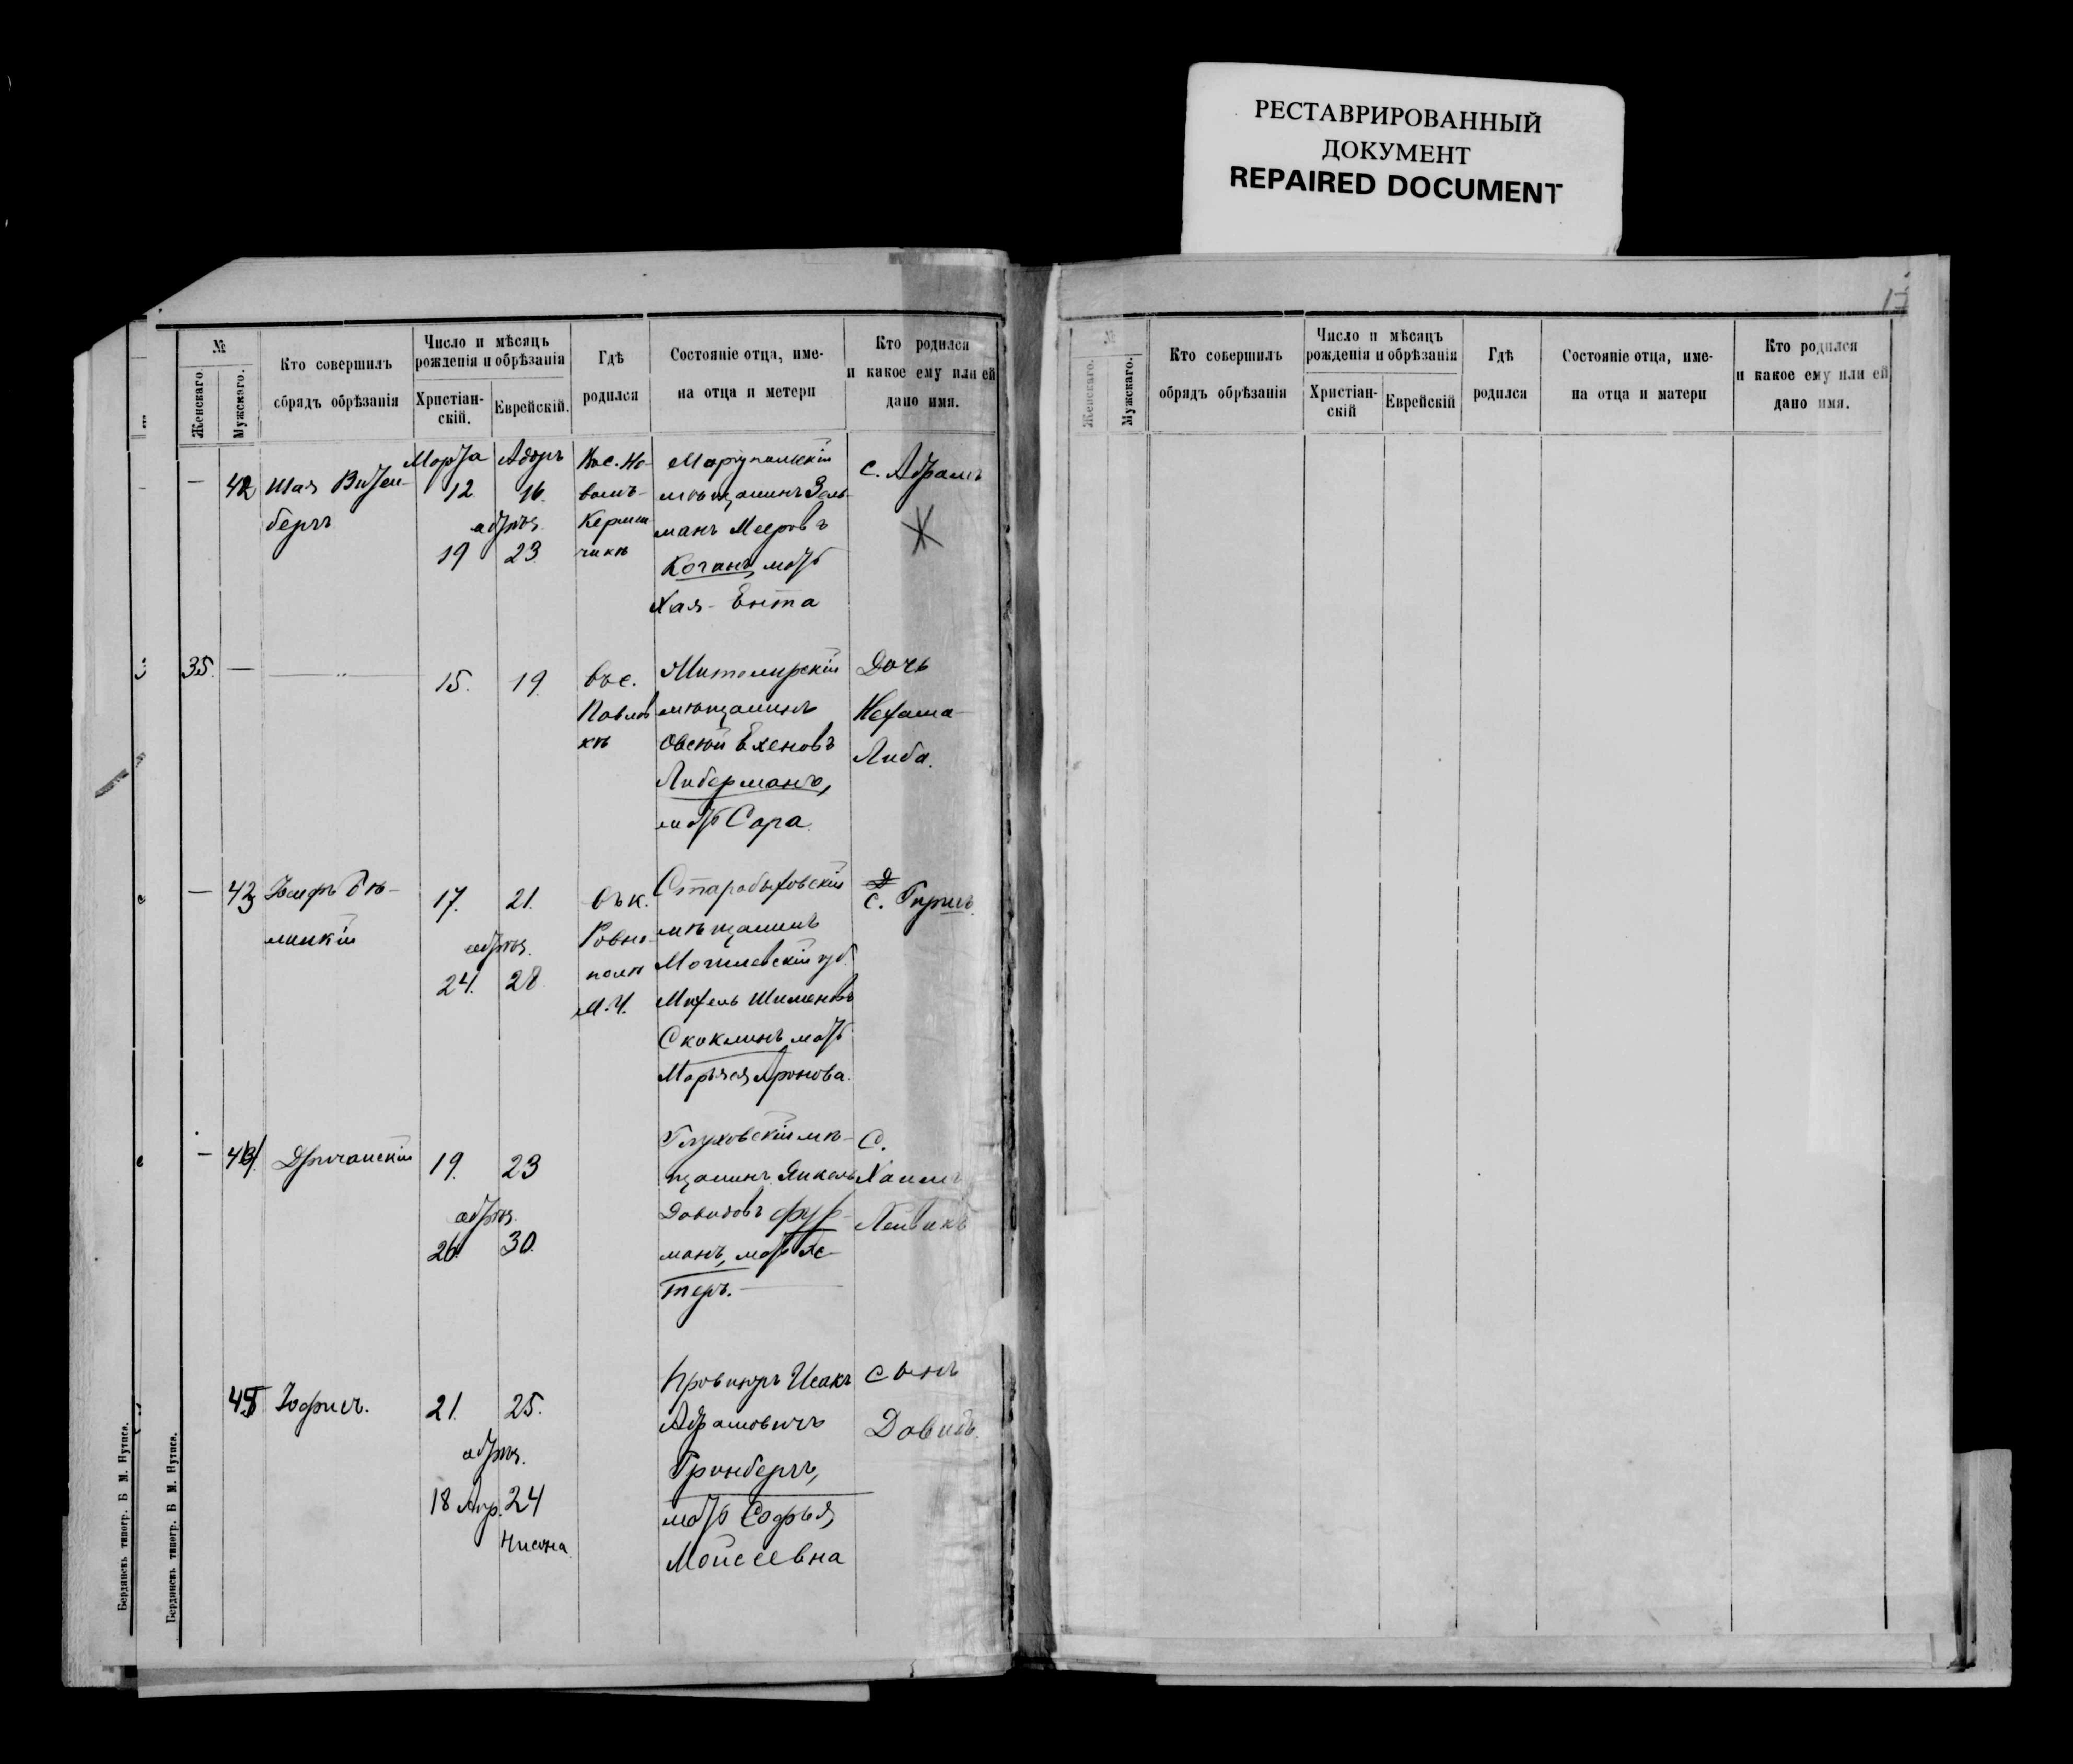 РЕСТАВРИРОВАННЫЙ
ДОКУМЕНТ
REPAIRED DOCUMENT
№
Женскаго.
Мужскаго.
Кто совершилъ
обрядъ обрѣзанія
Число и мѣсяцъ
рожденія и обрѣзанія
Христіан-
скій.
Еврейскій.
Гдѣ
родился
Состояніе отца, име-
на отца и метери
Кто родился
и какое ему или ей
дано имя.
— 42 Шая Витен-
бергъ
Марта Адаръ
12 16.
обрѣз.
19 23
Ново-
Кермен
чикѣ
Маріупольскій
мѣщанинъ Заль-
манъ Мееровъ
Коганъ, мать
Хая-Ента
С. Абрамъ
35. — —
15. 19.
въ с.
Павлов
кѣ
Житомирскій
мѣщанинъ
Овсей Еленовъ
Либерманъ,
мать Сара
Дочь
Нехама-
Либа.
— 43 Іосифъ Бѣ-
линкій
17. 21.
обрѣз.
24. 28
въ к.
Ровно-
полѣ
М. У.
Старобыховскій
мѣщанинъ
Могилевской губ.
Михель Шимоновъ
Скоклинъ, мать
Марьяся Аронова.
С. Гиршъ.
— 44. Дричанскій
19. 23
обрѣз.
26. 30.
Глуховскій мѣ-
щанинъ Янкель
Давидовъ Фур-
манъ, мать Эс-
теръ. —
С.
Хаимъ
Лейвикъ
45 Іоффисъ.
21. 25.
обрѣз.
18 Апр. 24
Нисона
Провизоръ Исакъ
Абрамовичъ
Гринбергъ,
мать Софья
Моисеевна
сынъ
Давидъ.
Бердянскъ типогр. Б М. Нутиса.
Бердянскъ типогр. Б М. Нутиса.
№
Женскаго.
Мужскаго.
Кто совершилъ
обрядъ обрѣзанія
Число и мѣсяцъ
рожденія и обрѣзанія
Христіан-
скій
Еврейскій
Гдѣ
родился
Состояніе отца, име-
на отца и матери
Кто родился
и какое ему или ей
дано имя.